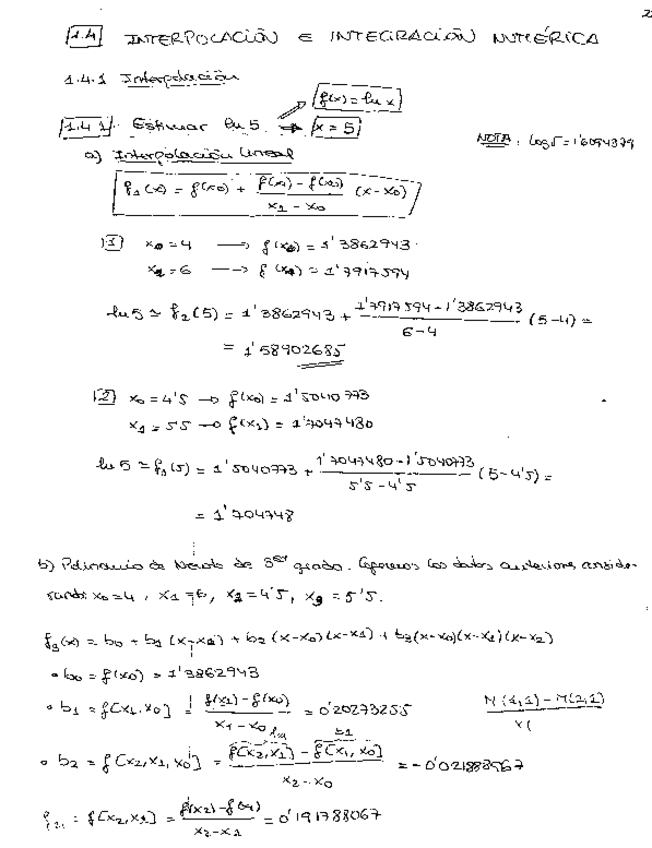 2
1.4 INTERPOLACIÓN E INTEGRACIÓN NUMÉRICA
1.4.1 Interpolación
f(x) = ln x
1.4.1. Estimar ln 5. → x = 5
NOTA: log 5 = 1'6094379
a) Interpolación lineal
f₁(x) = f(x₀) + (f(x₁) - f(x₀))/(x₁ - x₀) (x - x₀)
1) x₀ = 4 → f(x₀) = 1'3862943
x₁ = 6 → f(x₁) = 1'7917594
ln 5 ≃ f₁(5) = 1'3862943 + (1'7917594 - 1'3862943)/(6 - 4) (5 - 4) =
= 1'58902685
2) x₀ = 4'5 → f(x₀) = 1'5040773
x₁ = 5'5 → f(x₁) = 1'7047480
ln 5 ≃ f₁(5) = 1'5040773 + (1'7047480 - 1'5040773)/(5'5 - 4'5) (5 - 4'5) =
= 1'704748
b) Polinomio de Newton de 3er grado. Cogeremos los datos anteriores conside-
rando x₀ = 4, x₁ = 6, x₂ = 4'5, x₃ = 5'5.
f₃(x) = b₀ + b₁ (x - x₀) + b₂ (x - x₀)(x - x₁) + b₃ (x - x₀)(x - x₁)(x - x₂)
• b₀ = f(x₀) = 1'3862943
• b₁ = f[x₁, x₀] = (f(x₁) - f(x₀))/(x₁ - x₀) = 0'20273255
M(1,1) - M(2,1)
x(
b1
• b₂ = f[x₂, x₁, x₀] = (f[x₂, x₁] - f[x₁, x₀])/(x₂ - x₀) = -0'021888967
f[x₂, x₁] = (f(x₂) - f(x₁))/(x₂ - x₁) = 0'191788067